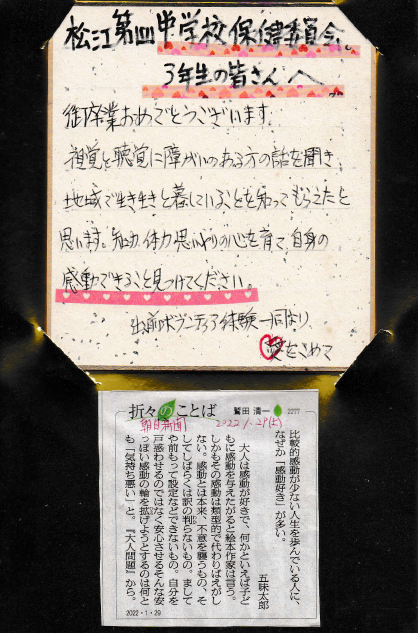 松江第四中学校保健委員会。
3年生の皆さんへ
御卒業おめでとうございます。
視覚と聴覚に障がいのある方の話を聞き、
地域で生き生きと暮していることを知ってもらえたと
思います。知力、体力、思いやりの心を育て、自身の
感動できること見つけてください。
出前ボランティア体験一同より、
愛をこめて
折々のことば 鷲田 清一 2277
朝日新聞 2022/1.29(土)
比較的感動が少ない人生を歩んでいる人に、
なぜか「感動好き」が多い。
五味太郎
大人は感動が好きで、何かといえば子ど
もに感動を与えたがると絵本作家は言う。
しかもその感動は類型的で代わりばえがし
ない。感動とは本来、不意を襲うもの、そ
してしばらくは訳の判らないもの。まして
や前もって設定などできないもの。自分を
戸惑わせるのではなく安心させるそんな安
っぽい感動の輪を拡げようとするのは何と
も「気持ち悪い」と。『大人問題』から。
2022・1・29